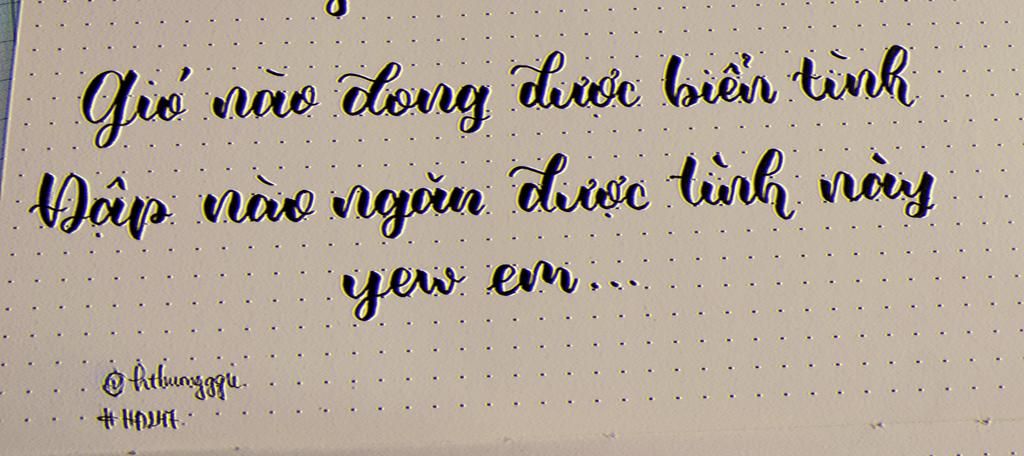 Gió nào đong được biển tình
Đập nào ngăn được tình này
yew em...